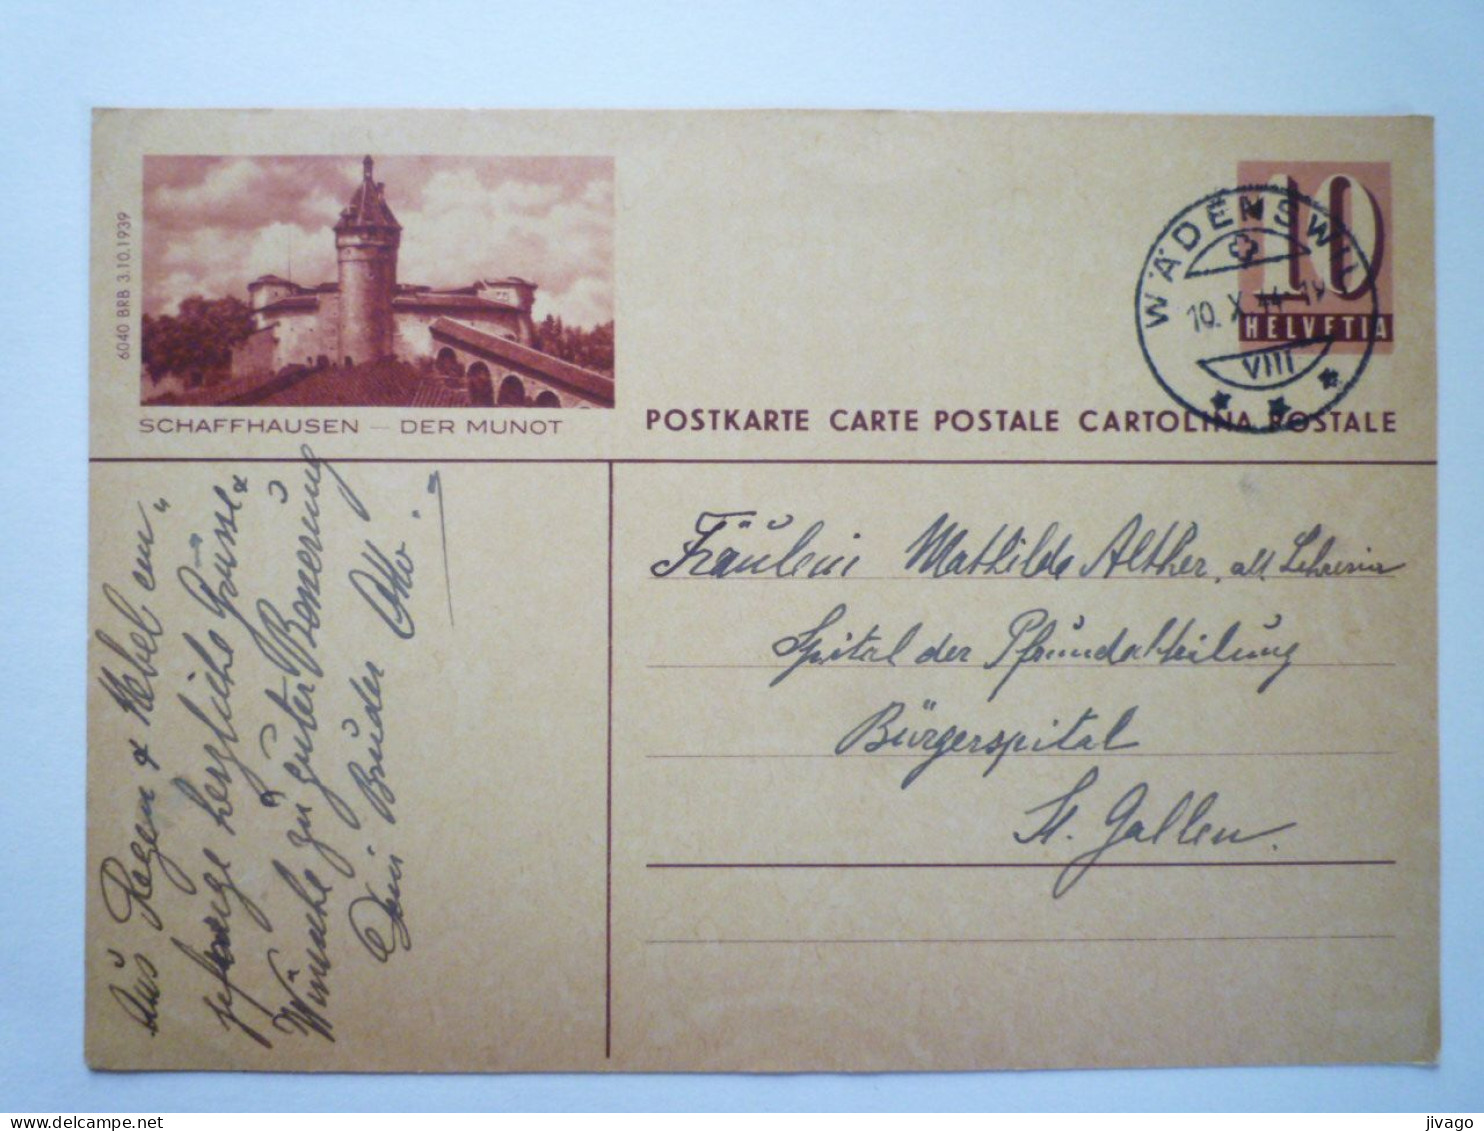 6040 BRB 3.10.1939
SCHAFFHAUSEN — DER MUNOT
10
HELVETIA
WÄDENSWIL
10. X. 44
VIII
POSTKARTE CARTE POSTALE CARTOLINA POSTALE
Aus Regen & Nebel em-
herzliche Grüsse &
Wünsche zu guter Besserung
Dein Bruder Otto.
Fräulein Mathilde Alther, alt Lehrerin
Spital der Pfrundabteilung
Bürgerspital
St. Gallen.
jivago
www.delcampe.net